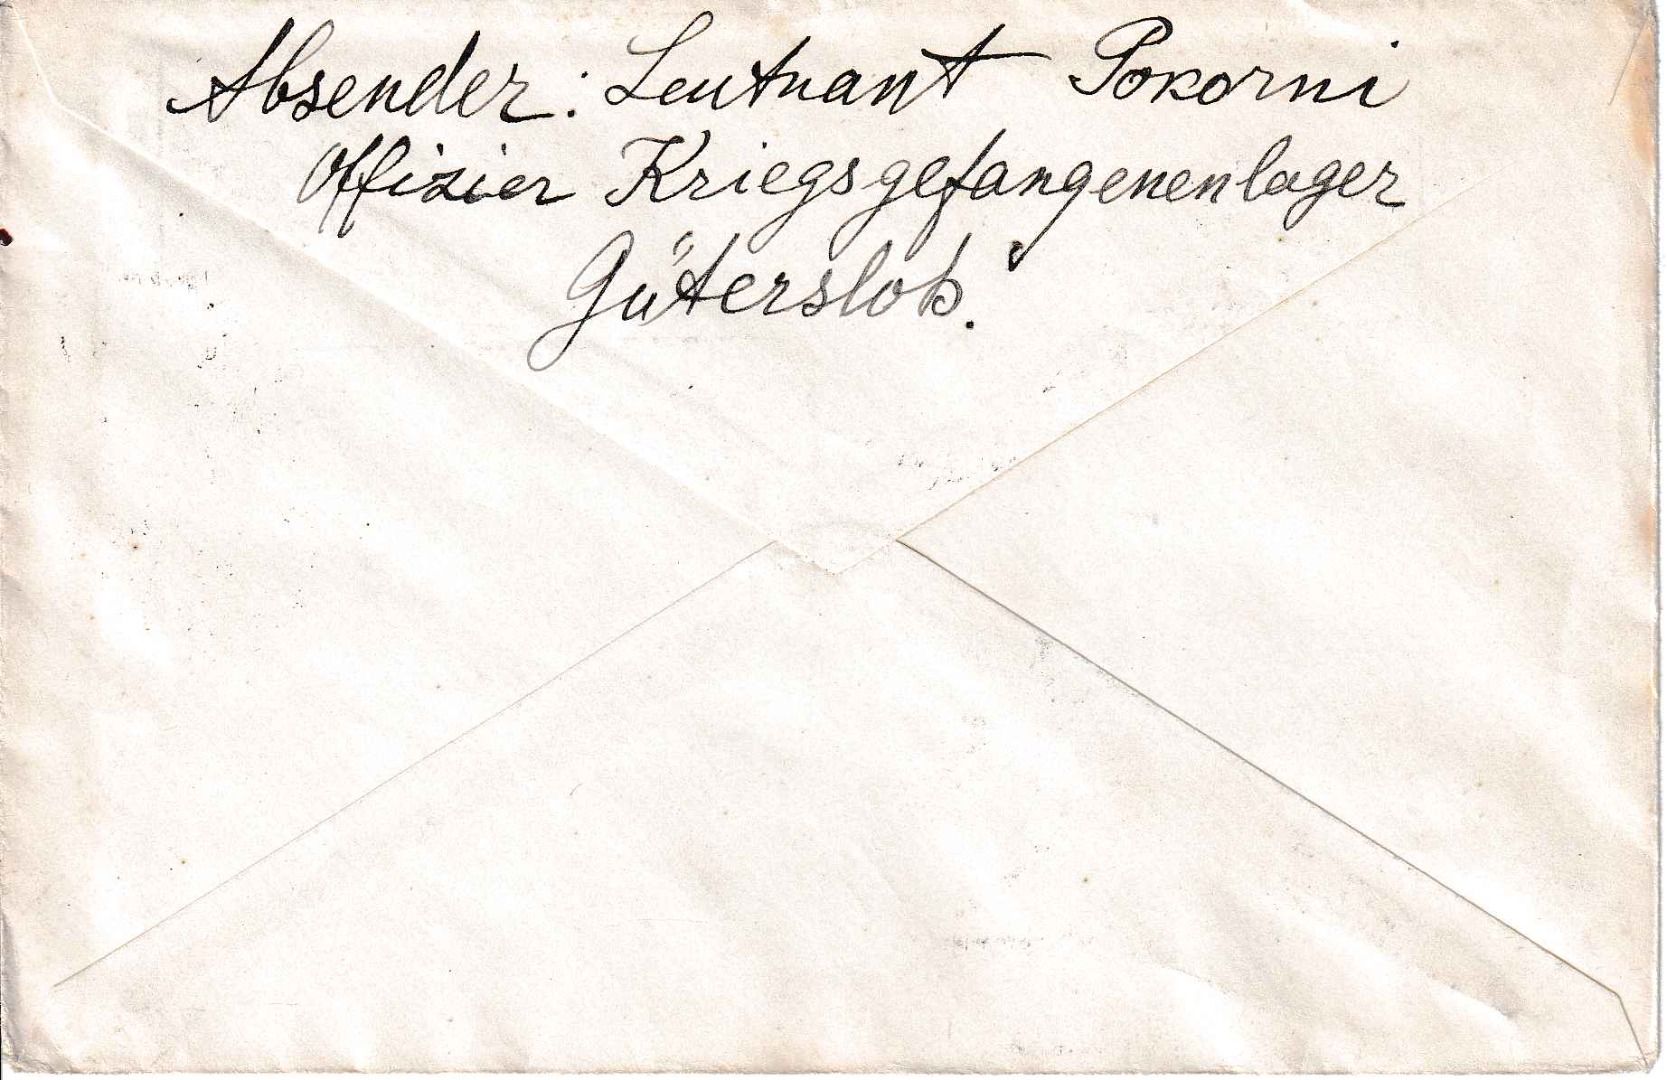 Absender: Leutnant Pokorni
Offizier Kriegsgefangenenlager
Gütersloh.